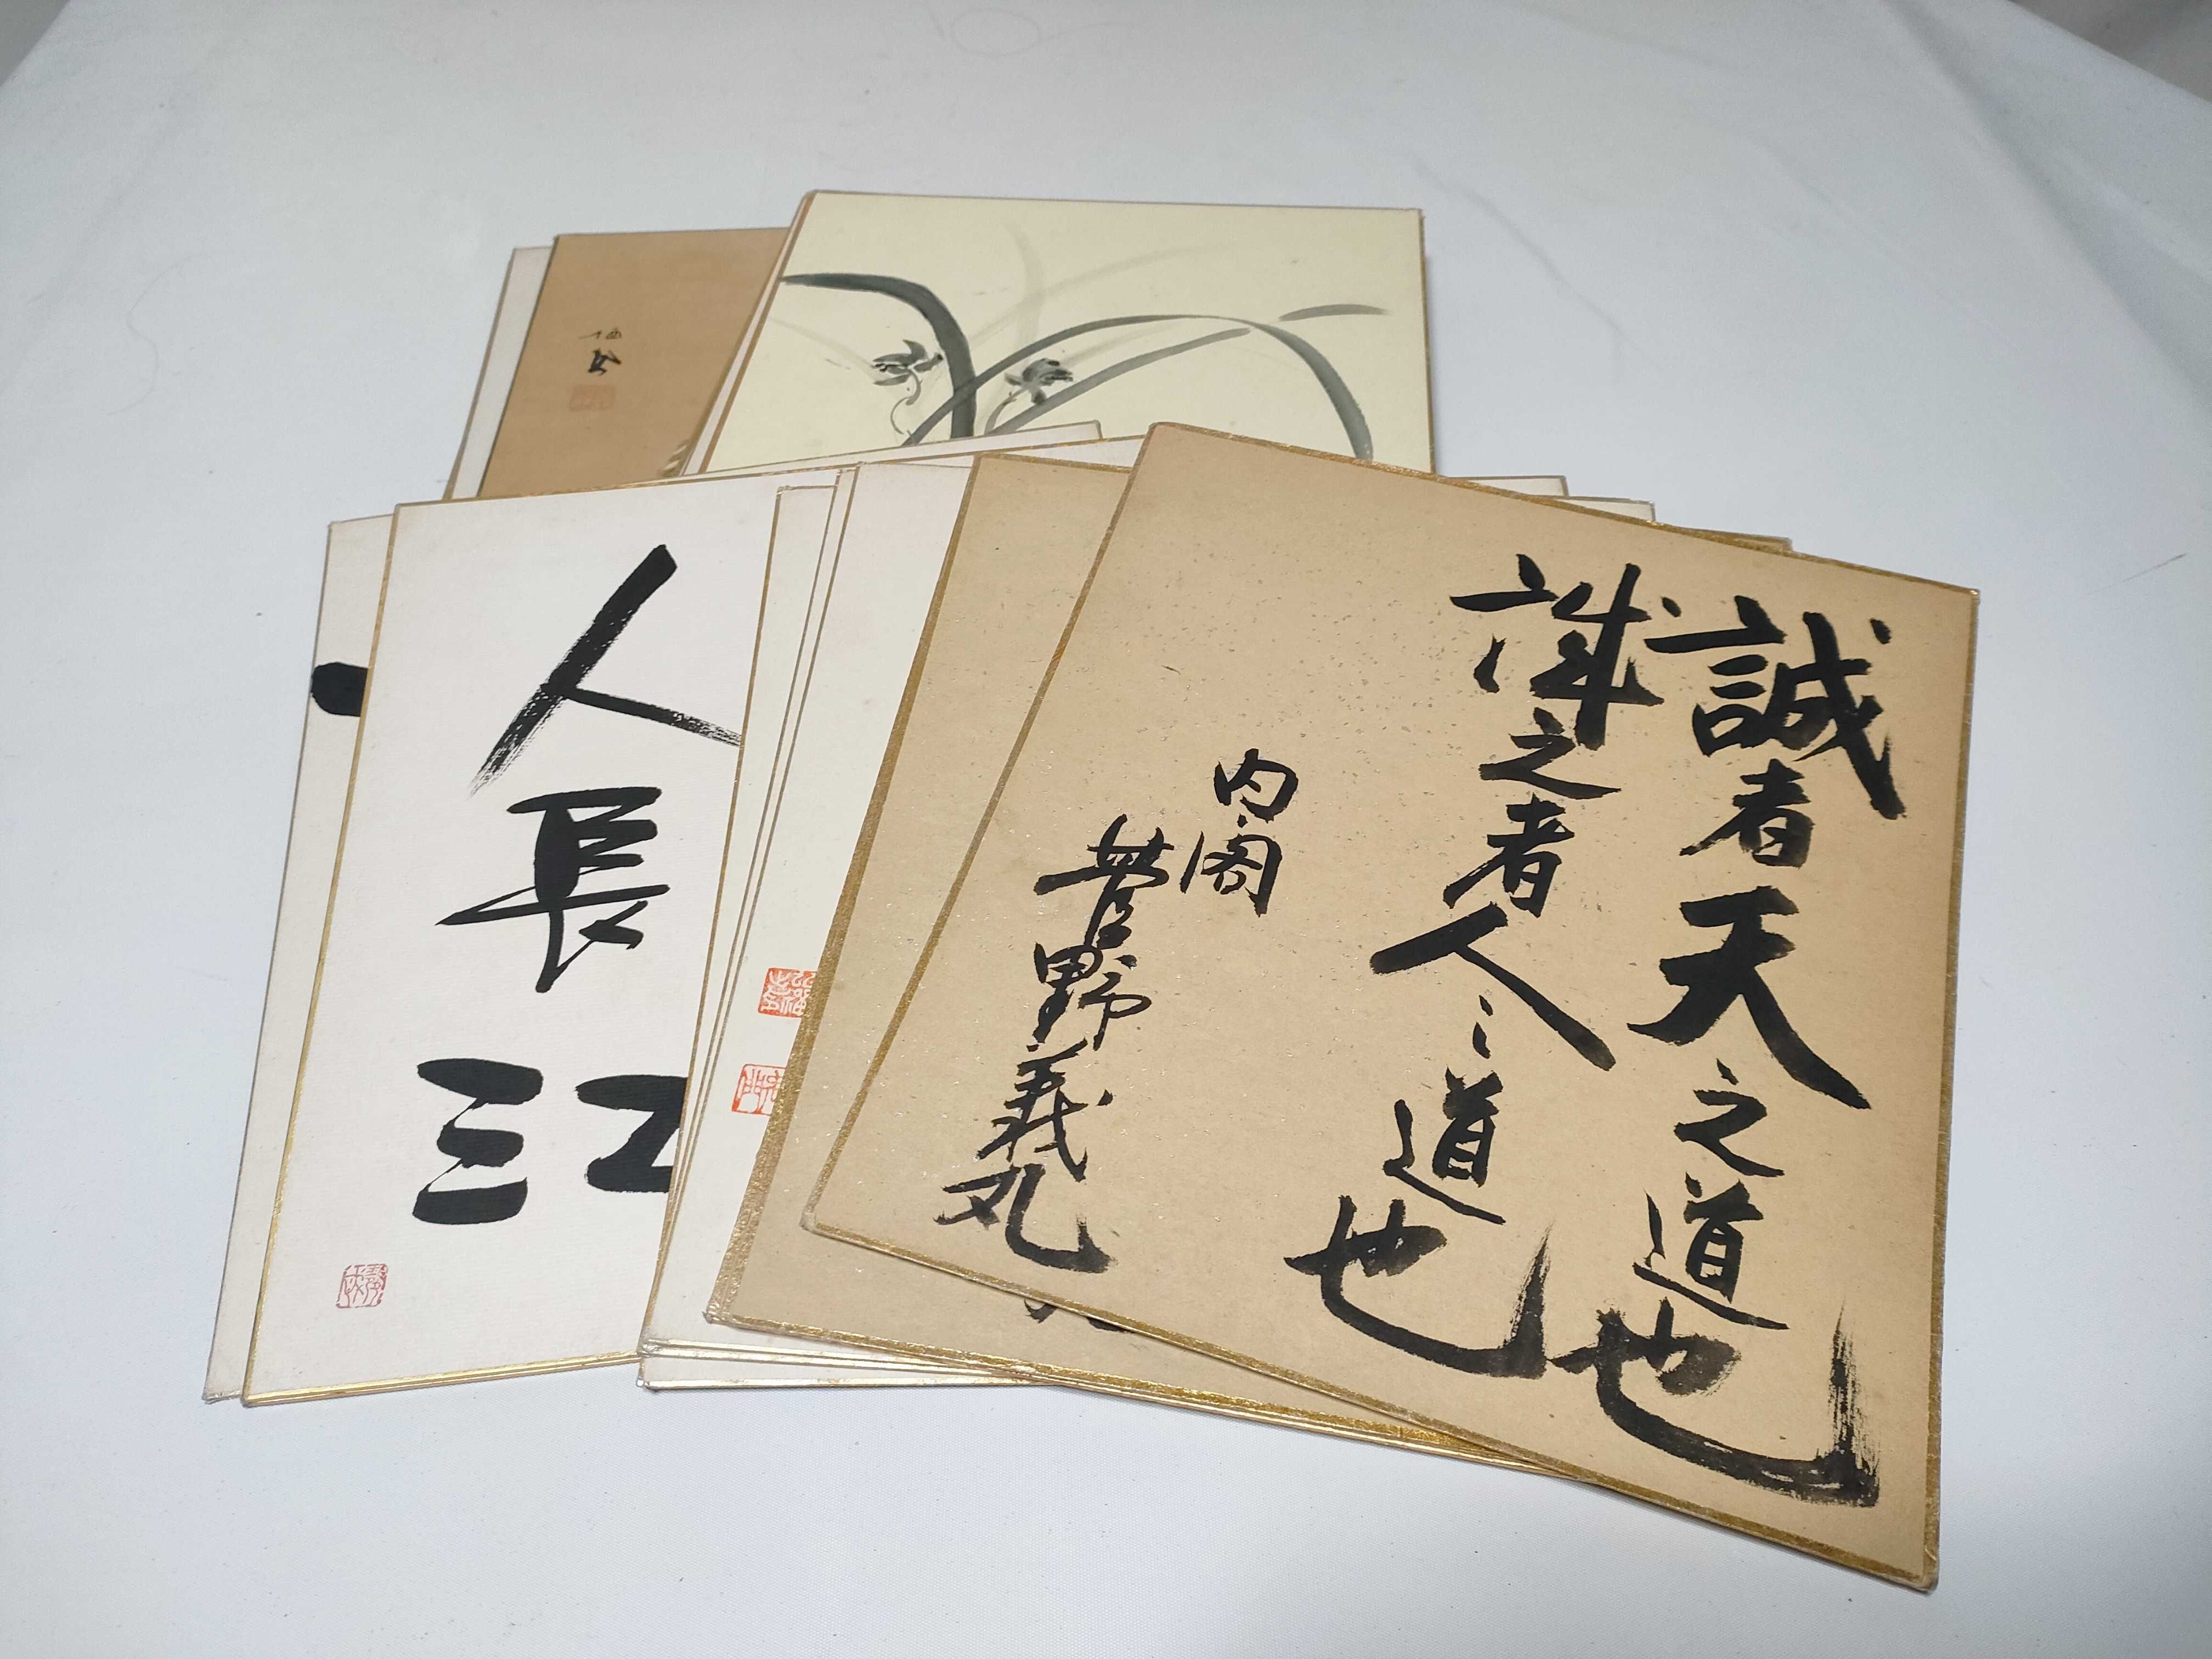 誠者天之道也
誠之者人之道也
内閣
菅野義丸
人長
江三